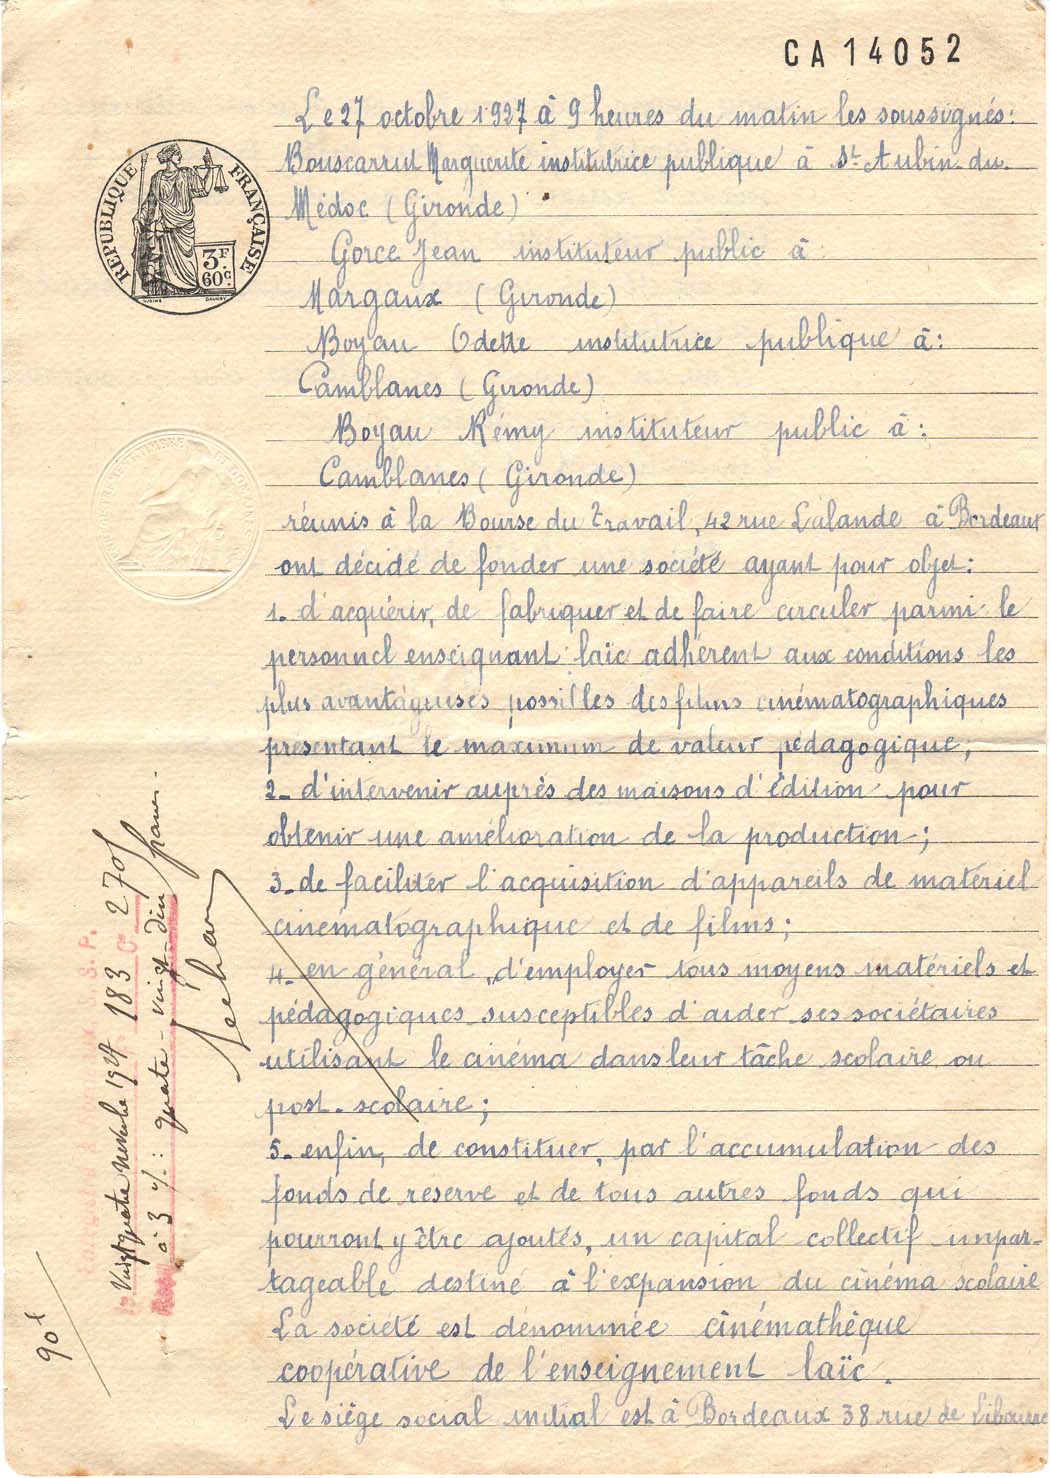 CA 14052
Le 27 octobre 1927 à 9 heures du matin les soussignés:
Bouscarrut Marguerite institutrice publique à St Aubin du
Médoc (Gironde)
Gorce Jean instituteur public à
Margaux (Gironde)
Boyau Odette institutrice publique à:
Camblanes (Gironde)
Boyau Rémy instituteur public à:
Camblanes (Gironde)
réunis à la Bourse du Travail, 42 rue Lalande à Bordeaux
ont décidé de fonder une société ayant pour objet:
1- d'acquérir, de fabriquer et de faire circuler parmi le
personnel enseignant laïc adhérent aux conditions les
plus avantageuses possibles des films cinématographiques
présentant le maximum de valeur pédagogique;
2- d'intervenir auprès des maisons d'édition pour
obtenir une amélioration de la production;
3- de faciliter l'acquisition d'appareils de matériel
cinématographique et de films;
4- en général, d'employer tous moyens matériels et
pédagogiques susceptibles d'aider ses sociétaires
utilisant le cinéma dans leur tâche scolaire ou
post-scolaire;
5- enfin, de constituer, par l'accumulation des
fonds de reserve et de tous autres fonds qui
pourront y être ajoutés, un capital collectif impar-
tageable destiné à l'expansion du cinéma scolaire
La société est dénommée cinémathèque
coopérative de l'enseignement laïc.
Le siège social initial est à Bordeaux 38 rue de Libourne
RÉPUBLIQUE FRANÇAISE
3F
60c.
Vingt quatre novembre 1927 183 Ce 270
à 3 %: quatre-vingt-dix francs.
90f